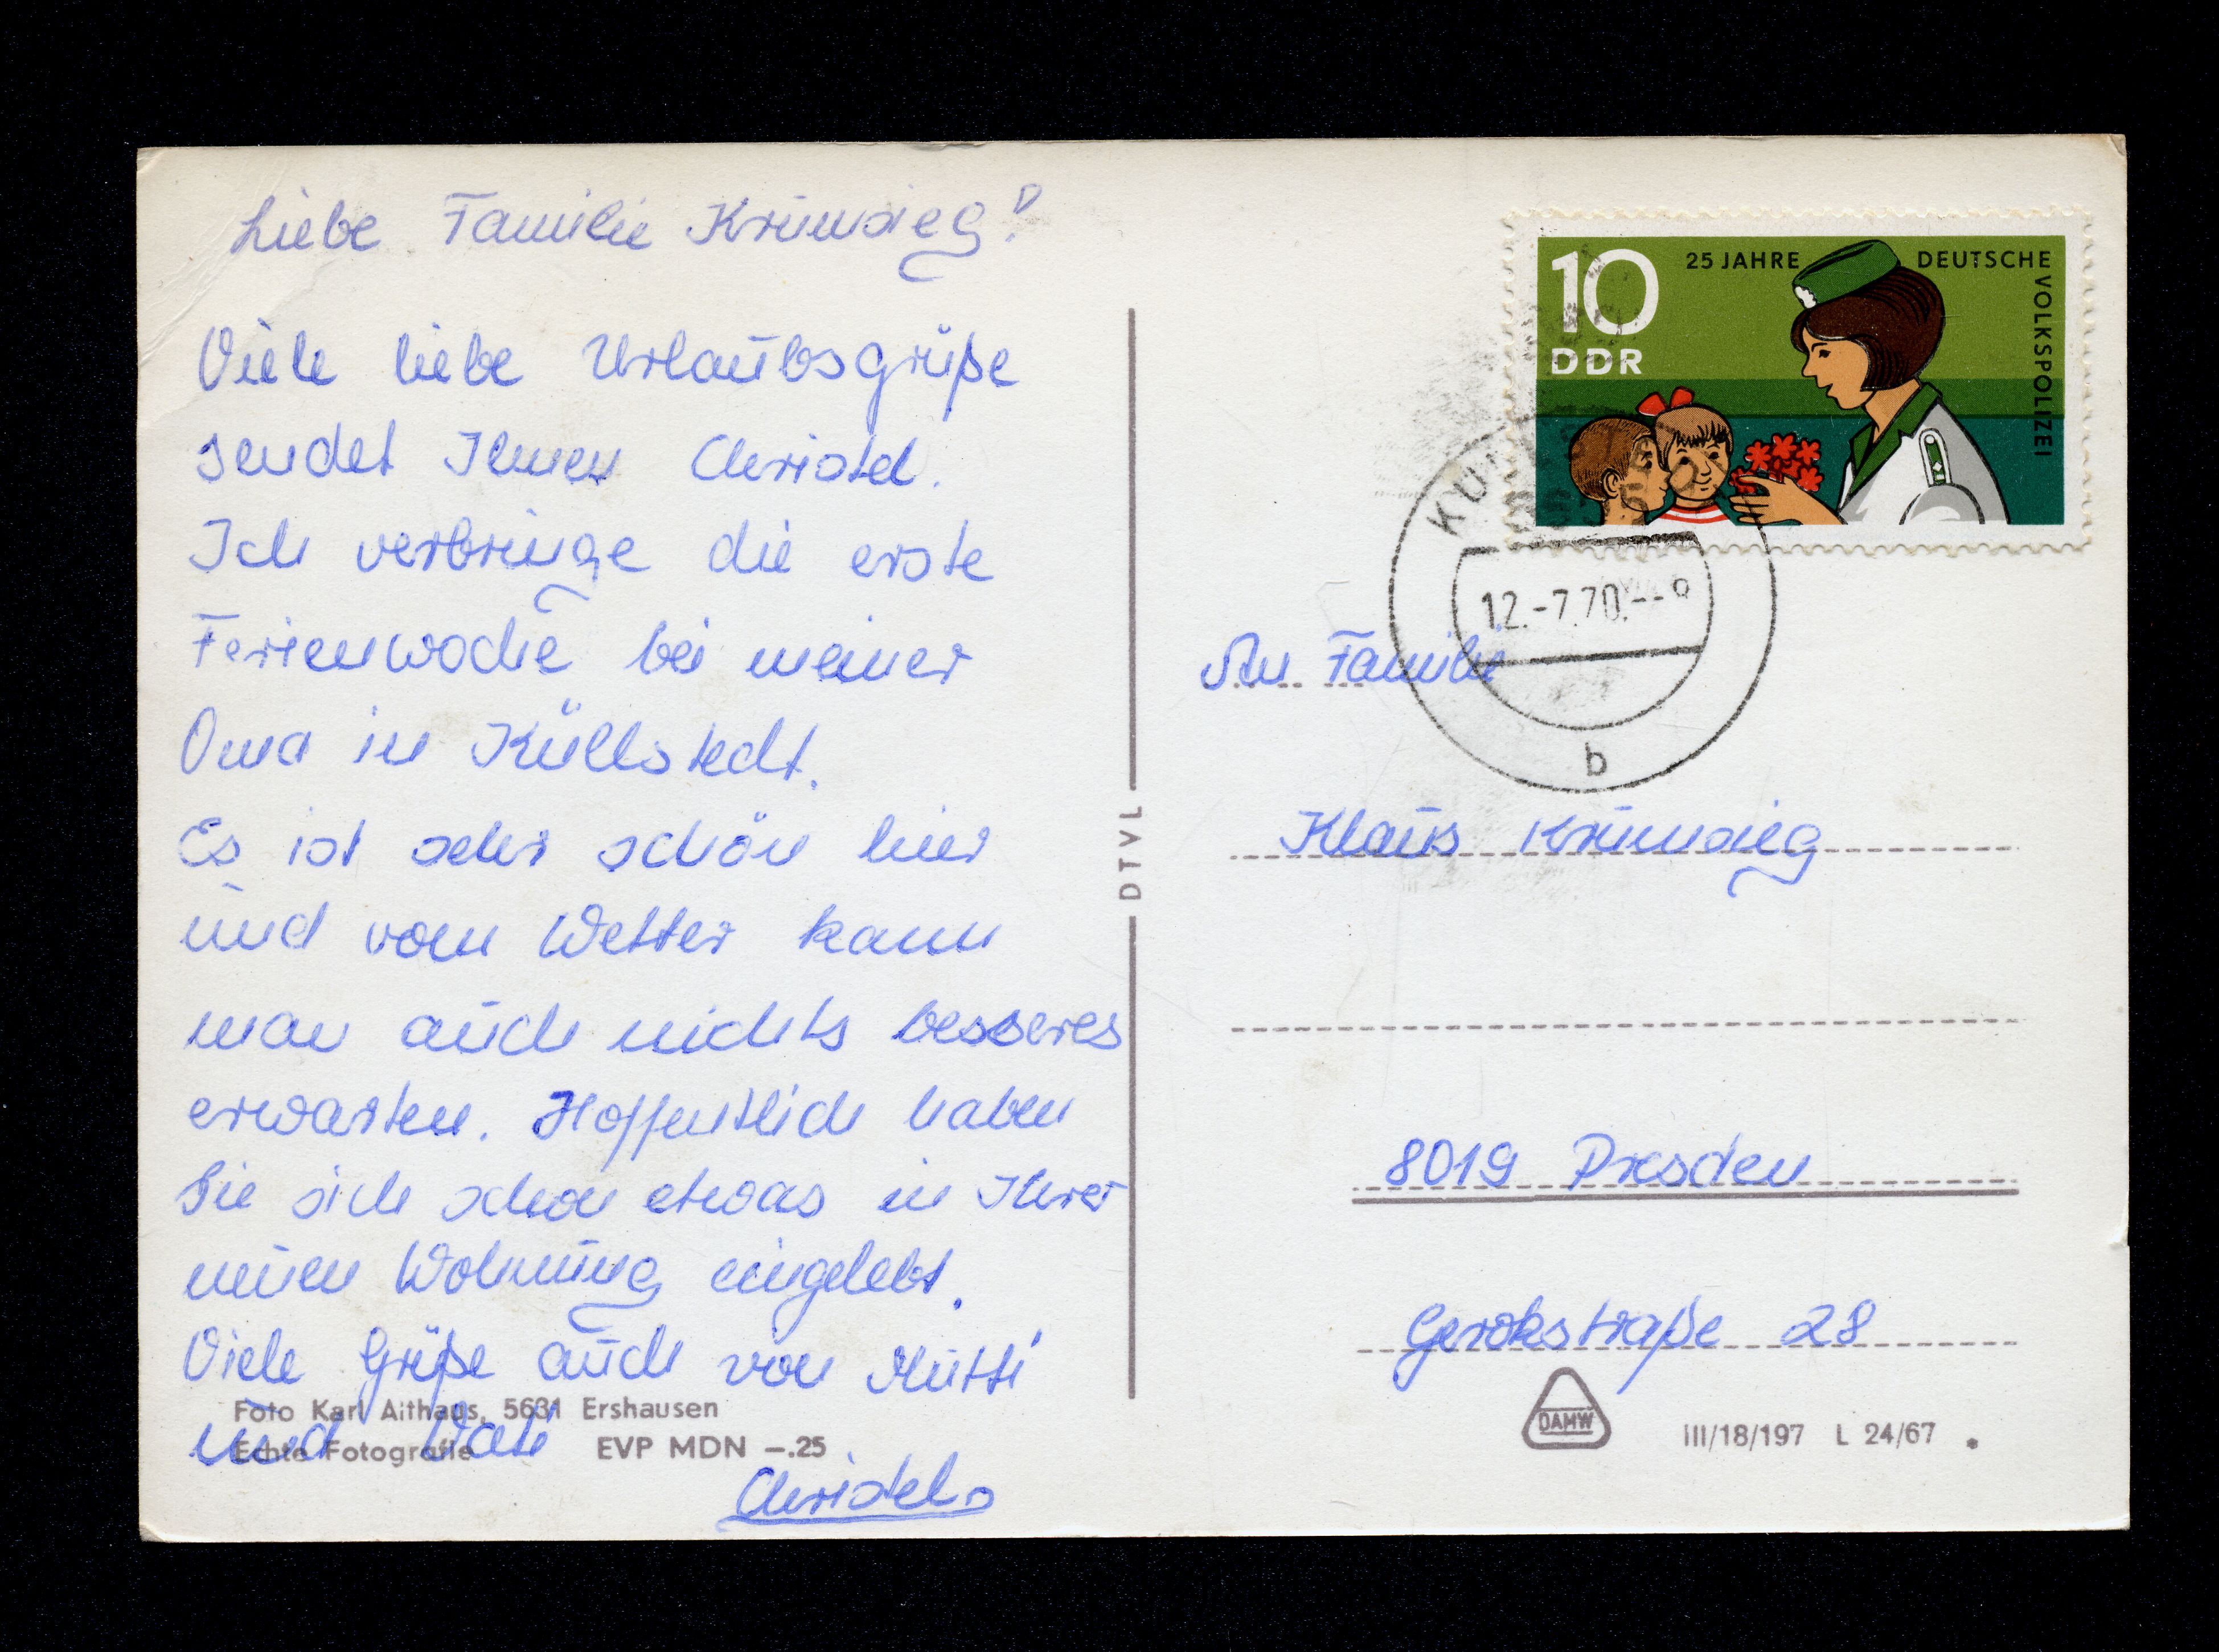 Liebe Familie Krumsieg!
Viele liebe Urlaubsgrüße
sendet Ihnen Christel.
Ich verbringe die erste
Ferienwoche bei meiner
Oma in Küllstedt.
Es ist sehr schön hier
und vom Wetter kann
man auch nichts besseres
erwarten. Hoffentlich haben
Sie sich schon etwas in Ihrer
neuen Wohnung eingelebt.
Viele Grüße auch von Mutti
und Vati
Christel.
Foto Karl Althaus, 5631 Ershausen
Echte Fotografie EVP MDN –.25
DTVL
10
DDR
25 JAHRE DEUTSCHE VOLKSPOLIZEI
12.-7.70.--9
b
An Familie
Klaus Krumsieg
8019 Dresden
Gerokstraße 28
DAMW
III/18/197 L 24/67